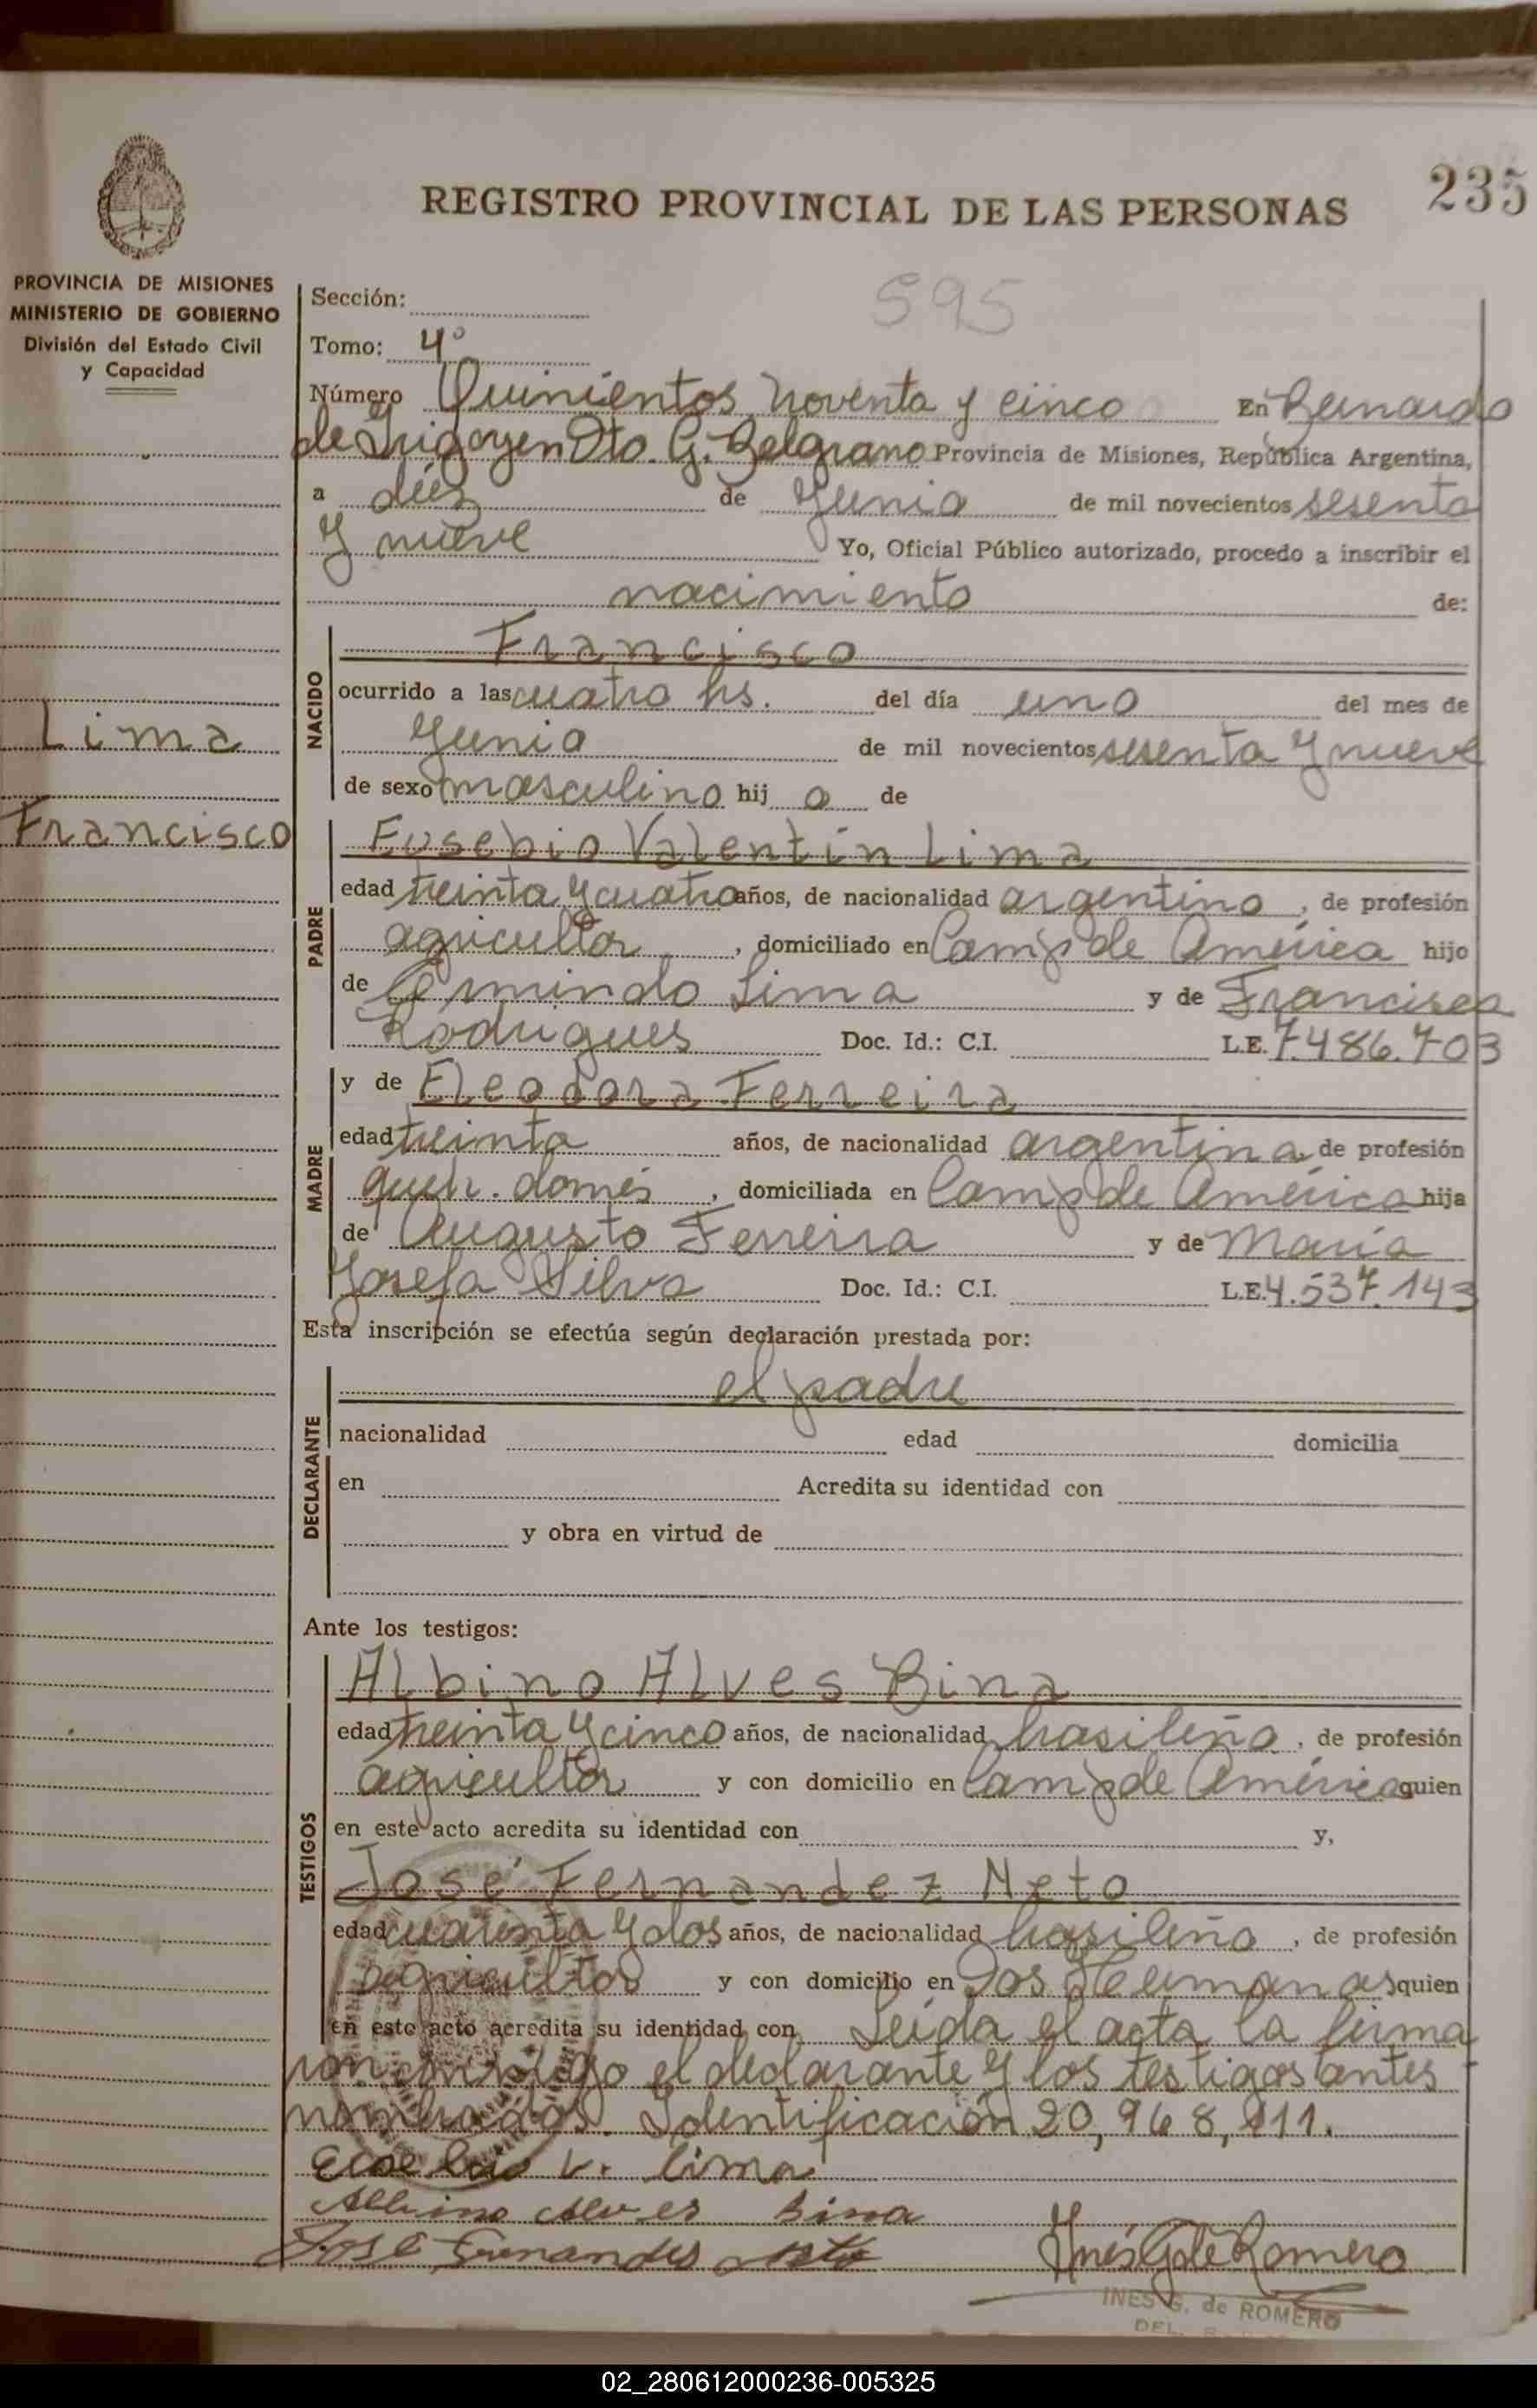 235
REGISTRO PROVINCIAL DE LAS PERSONAS
PROVINCIA DE MISIONES
MINISTERIO DE GOBIERNO
División del Estado Civil
y Capacidad
595
Sección:
Tomo: 4º
Número Quinientos noventa y cinco En Bernardo
de Irigoyen Dto. G. Belgrano Provincia de Misiones, República Argentina,
a diez de Junio de mil novecientos sesenta
y nueve Yo, Oficial Público autorizado, procedo a inscribir el
nacimiento de:
Lima
Francisco
NACIDO
Francisco
ocurrido a las cuatro hs. del día uno del mes de
Junio de mil novecientos sesenta y nueve
de sexo masculino hij o de
PADRE
Eusebio Valentín Lima
edad treinta y cuatro años, de nacionalidad argentino, de profesión
agricultor, domiciliado en Camp de América hijo
de Ermindo Lima y de Francisca
Rodrigues Doc. Id.: C.I. L.E. 7.486.703
MADRE
y de Eleodora Ferreira
edad treinta años, de nacionalidad argentina de profesión
queh. domés, domiciliada en Camp de América hija
de Augusto Ferreira y de María
Josefa Silva Doc. Id.: C.I. L.E. 4.537.143
Esta inscripción se efectúa según declaración prestada por:
DECLARANTE
el padre
nacionalidad edad domicilia
en Acredita su identidad con
y obra en virtud de
Ante los testigos:
TESTIGOS
Albino Alves Bina
edad treinta y cinco años, de nacionalidad brasileña, de profesión
agricultor y con domicilio en Camp de América quien
en este acto acredita su identidad con y,
José Fernandez Neto
edad cuarenta y dos años, de nacionalidad brasileña, de profesión
agricultor y con domicilio en Dos Hermanas quien
en este acto acredita su identidad con Leída el acta la firma
con conmigo el declarante y los testigos antes
nombrados. Identificación 20,968,111.
Eusebio V. Lima
Albino Alves Bina
José Fernandes Neto
Inés G de Romero
INES G. de ROMERO
DEL.
02_280612000236-005325